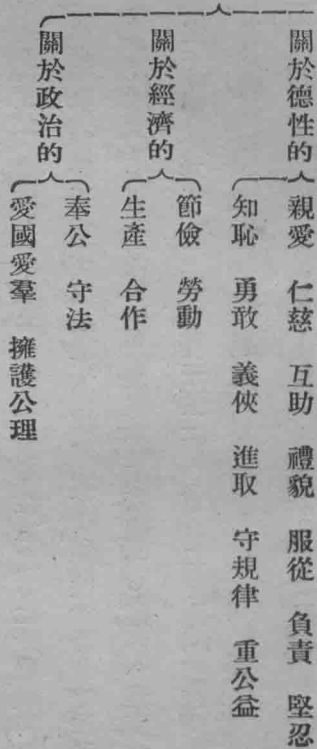 關於德性的
親愛 仁慈 互助 禮貌 服從 負責 堅忍
知恥 勇敢 義俠 進取 守規律 重公益
關於經濟的
節儉 勞動
生產 合作
關於政治的
奉公 守法
愛國愛羣 擁護公理